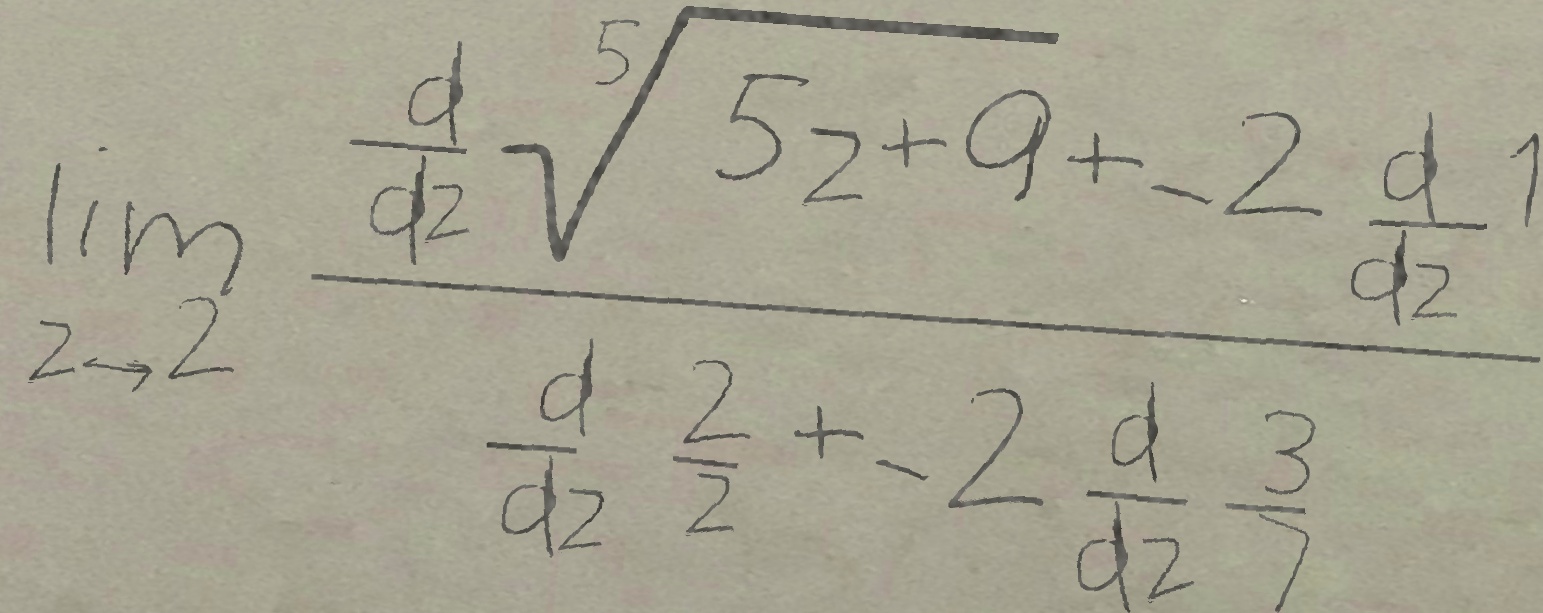 \lim_{z \to 2} \frac{\frac{d}{dz} \sqrt[5]{5z+9} + -2 \frac{d}{dz} 1}{\frac{d}{dz} \frac{2}{z} + -2 \frac{d}{dz} \frac{3}{7}}